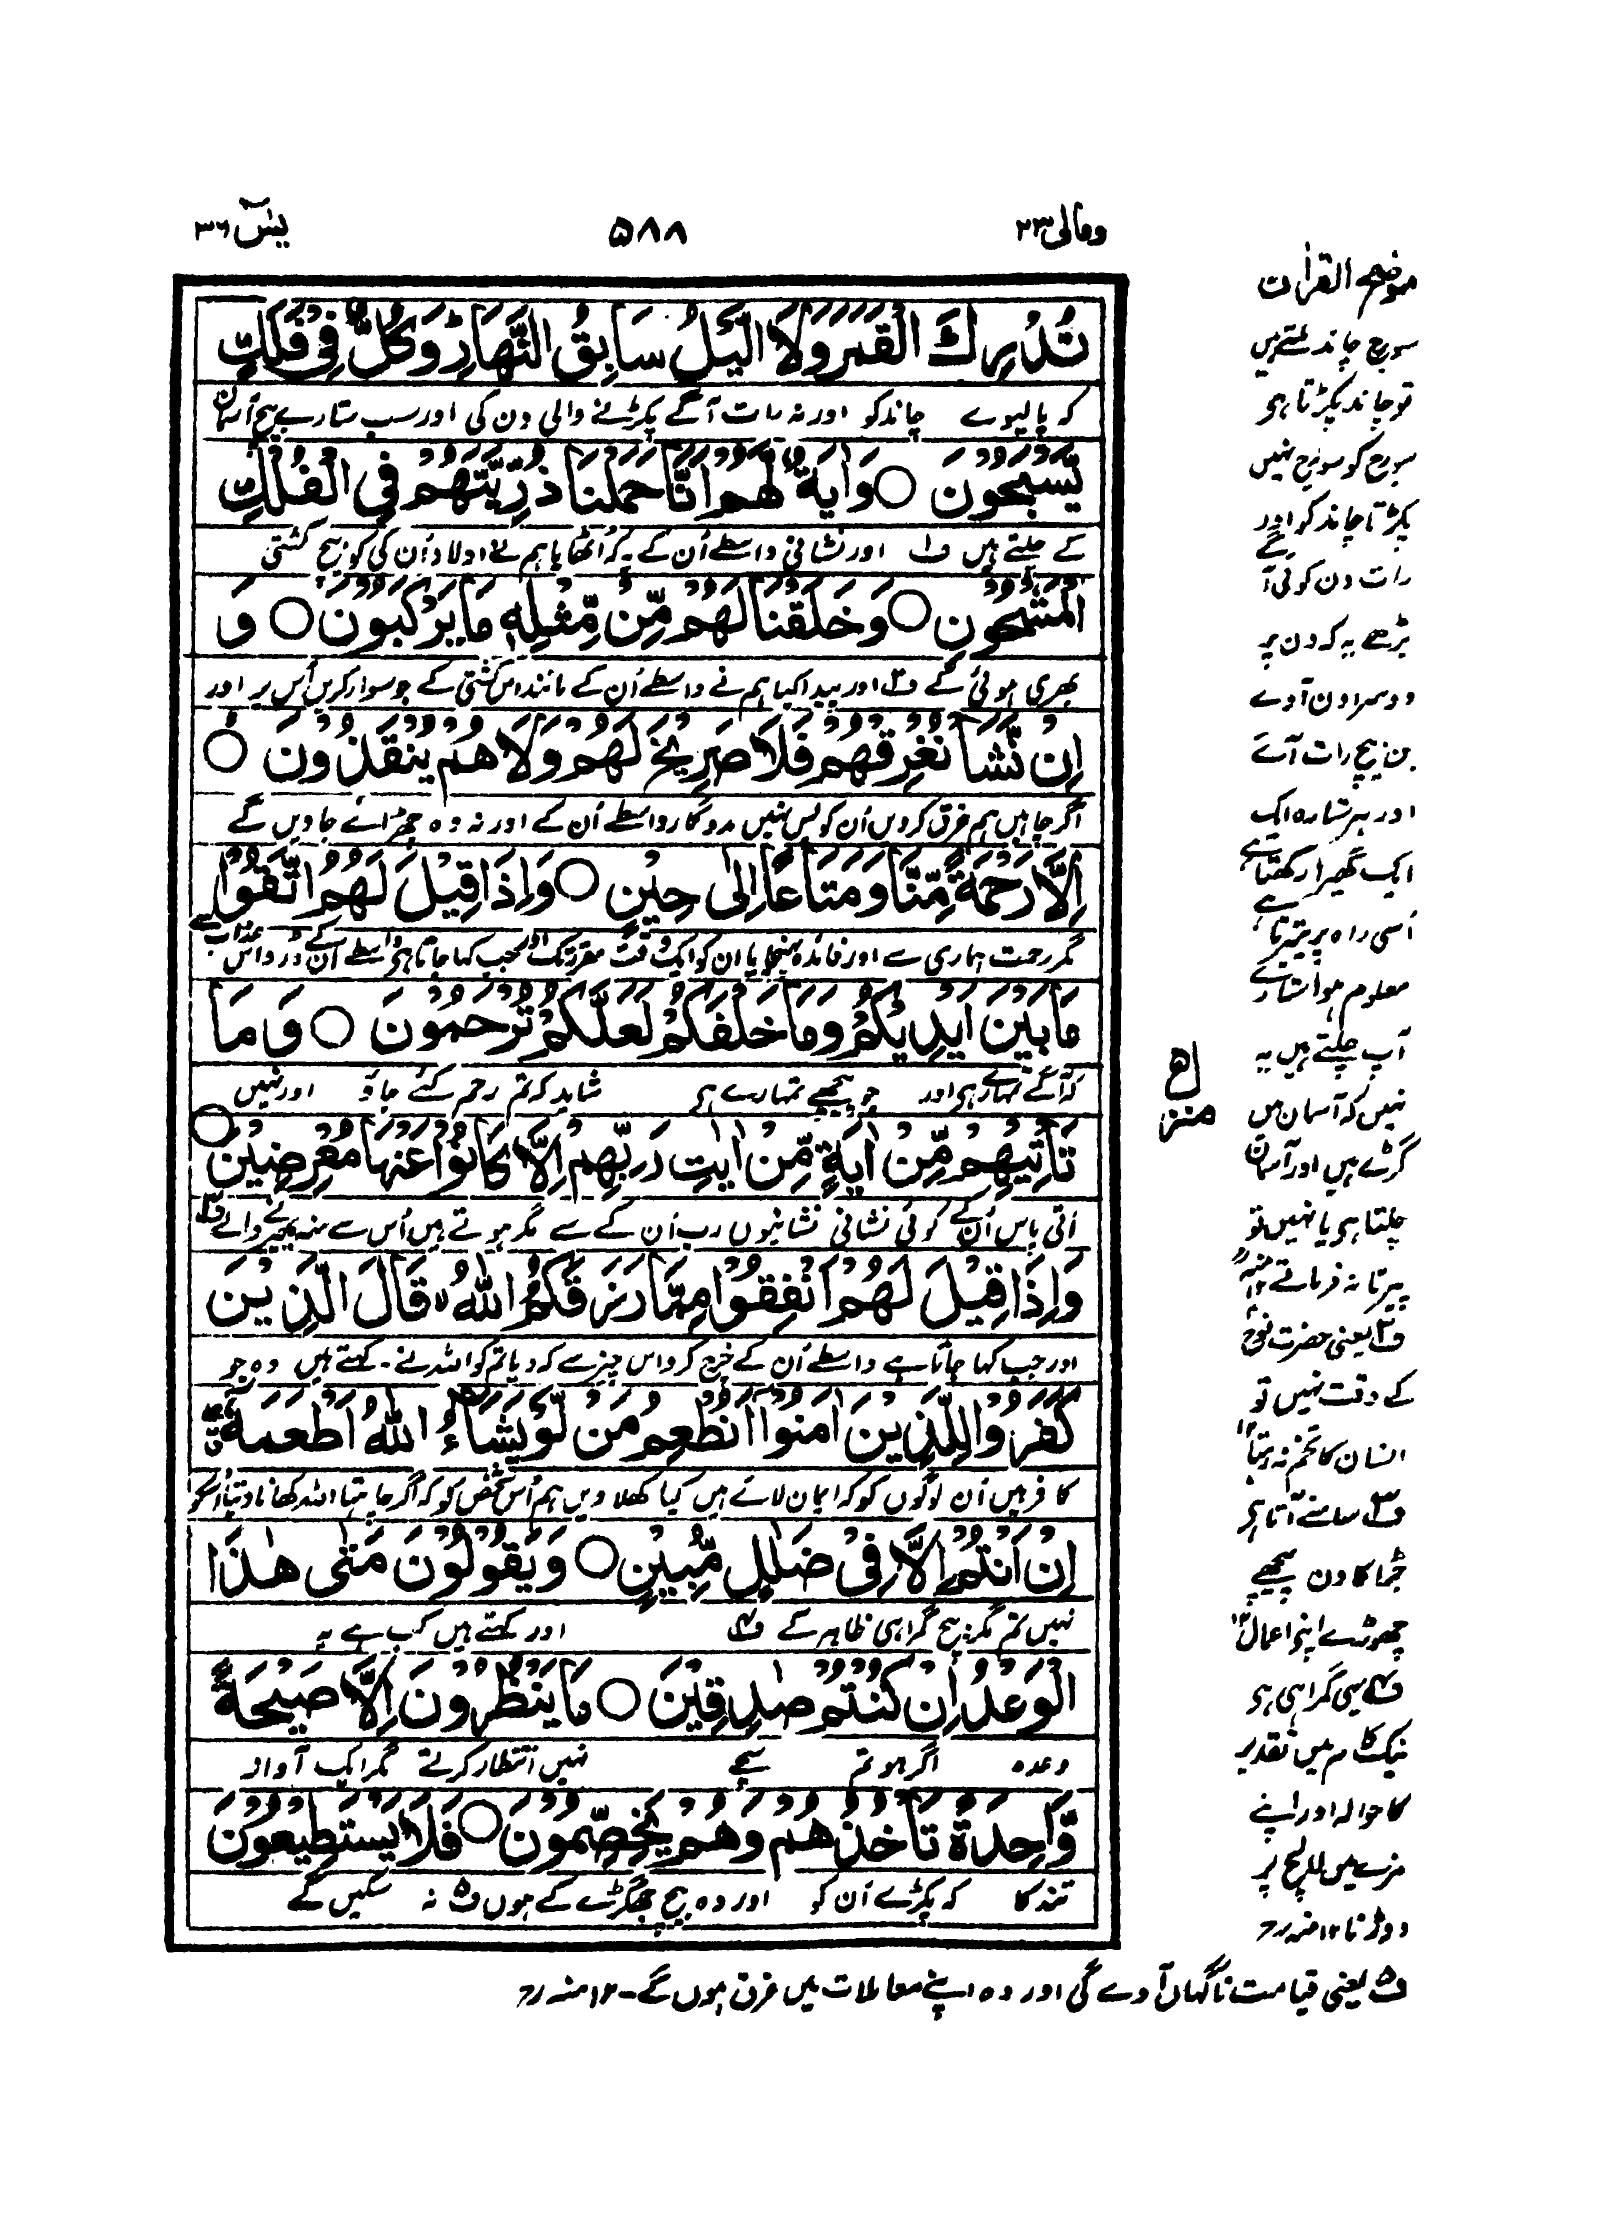 ومالی ۲۳
۵۸۸
یٰسٓ ۳۶
تُدْرِكَ الْقَمَرَ وَلَا الَّيْلُ سَابِقُ النَّهَارِ ؕ وَكُلٌّ فِيْ فَلَكٍ
کہ پا لیوے چاند کو اور نہ رات آگے پکڑنے والی دن کی اور سب ستارے بیچ آسمان
يَّسْبَحُوْنَ ○ وَاٰيَةٌ لَّهُمْ اَنَّا حَمَلْنَا ذُرِّيَّتَهُمْ فِي الْفُلْكِ
کے چلتے ہیں ف۱ اور نشانی واسطے اُن کے یہ کہ اُٹھایا ہم نے اولاد اُن کی کو بیچ کشتی
الْمَشْحُوْنِ ○ وَخَلَقْنَا لَهُمْ مِّنْ مِّثْلِهٖ مَا يَرْكَبُوْنَ ○ وَ
بھری ہوئی کے ف۲ اور پیدا کیا ہم نے واسطے اُن کے مانند اس کشتی کے جو سوار کریں اُس پر اور
اِنْ نَّشَاْ نُغْرِقْهُمْ فَلَا صَرِيْخَ لَهُمْ وَلَا هُمْ يُنْقَذُوْنَ ○
اگر چاہیں ہم غرق کر دیں اُن کو پس نہیں مددگار واسطے اُن کے اور نہ وہ چھڑائے جاویں گے
اِلَّا رَحْمَةً مِّنَّا وَمَتَاعًا اِلٰى حِيْنٍ ○ وَاِذَا قِيْلَ لَهُمُ اتَّقُوْا
مگر رحمت ہماری سے اور فائدہ پہنچایا ان کو ایک وقت مقرر تک اور جب کہا جاتا ہی واسطے اُن کے ڈرو اس عذاب سے
مَا بَيْنَ اَيْدِيْكُمْ وَمَا خَلْفَكُمْ لَعَلَّكُمْ تُرْحَمُوْنَ ○ وَمَا
کہ آگے تمہارے ہی اور جو پیچھے تمہارے ہی شاید کہ تم رحم کئے جاؤ اور نہیں
تَاْتِيْهِمْ مِّنْ اٰيَةٍ مِّنْ اٰيٰتِ رَبِّهِمْ اِلَّا كَانُوْا عَنْهَا مُعْرِضِيْنَ ○
آتی پاس اُن کے کوئی نشانی نشانیوں رب اُن کے سے مگر ہوتے ہیں اُس سے منہ پھیرنے والے ف۳
وَاِذَا قِيْلَ لَهُمْ اَنْفِقُوْا مِمَّا رَزَقَكُمُ اللّٰهُ ۙ قَالَ الَّذِيْنَ
اور جب کہا جاتا ہے واسطے اُن کے خرچ کرو اس چیز سے کہ دیا تم کو اللہ نے - کہتے ہیں وہ جو
كَفَرُوْا لِلَّذِيْنَ اٰمَنُوْٓا اَنُطْعِمُ مَنْ لَّوْ يَشَآءُ اللّٰهُ اَطْعَمَهٗٓ
کافر ہیں اُن لوگوں کو کہ ایمان لائے ہیں کیا کھلا ویں ہم اُس شخص کو کہ اگر چاہتا اللہ کھانا دیتا اُسکو
اِنْ اَنْتُمْ اِلَّا فِيْ ضَلٰلٍ مُّبِيْنٍ ○ وَيَقُوْلُوْنَ مَتٰى هٰذَا
نہیں تم مگر بیچ گمراہی ظاہر کے ف۴ اور کہتے ہیں کب ہے یہ
الْوَعْدُ اِنْ كُنْتُمْ صٰدِقِيْنَ ○ مَا يَنْظُرُوْنَ اِلَّا صَيْحَةً
وعدہ اگر ہو تم سچے نہیں انتظار کرتے مگر ایک آواز
وَّاحِدَةً تَاْخُذُهُمْ وَهُمْ يَخِصِّمُوْنَ ○ فَلَا يَسْتَطِيْعُوْنَ
تند کا کہ پکڑے اُن کو اور وہ بیچ جھگڑے کے ہوں ف۵ نہ سکیں گے
منزل ۵
موضح القرآن
سورج چاند ملتے ہیں
تو چاند پکڑتا ہی
سورج کو سورج نہیں
پکڑتا چاند کو اور
رات دن کو نہیں آگے
بڑھے یہ کہ دن پر
دوسرا دن آوے
بن بیچ رات آئے
اور ہر ستارہ ایک
ایک گھیرا رکھتا ہے
اُسی راہ پر تیرتا ہے
معلوم ہوا ستارے
آپ چلتے ہیں یہ
نہیں کہ آسمان میں
گڑے ہیں اور آسمان
چلتا ہی یا نہیں تو
پیرتا نہ فرماتے ۱۲ منہ رح
ف۲ یعنی حضرت نوح
کے وقت نہیں تو
انسان کا تخم نہ رہتا
ف۳ سامنے آتا ہی
جزا کا دن پیچھے
چھوڑے اپنے اعمال
ف۴ یہی گمراہی ہی
نیک کام میں تقدیر
کا حوالہ اور اپنے
مزے میں لالچ پر
دوڑنا ۱۲ منہ رح
ف۵ یعنی قیامت ناگہاں آوے گی اور وہ اپنے معاملات میں غرق ہوں گے - ۱۲ منہ رح